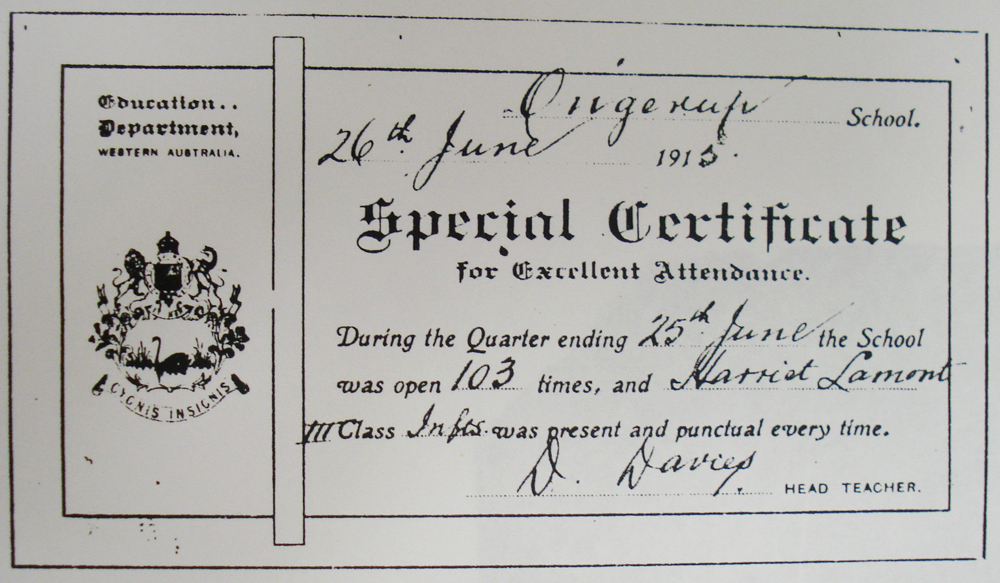 Education..
Department,
WESTERN AUSTRALIA.
CYGNIS INSIGNIS
Ongerup School.
26th June 1915.
Special Certificate
for Excellent Attendance.
During the Quarter ending 25th June the School
was open 103 times, and Harriet Lamont
III Class Infts. was present and punctual every time.
D. Davies
HEAD TEACHER.